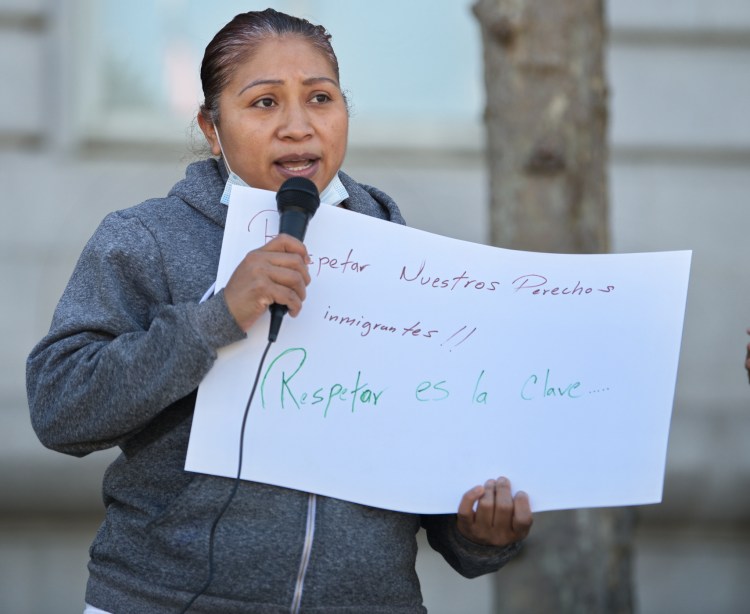 Respetar Nuestros Derechos
inmigrantes!!
Respetar es la clave.....